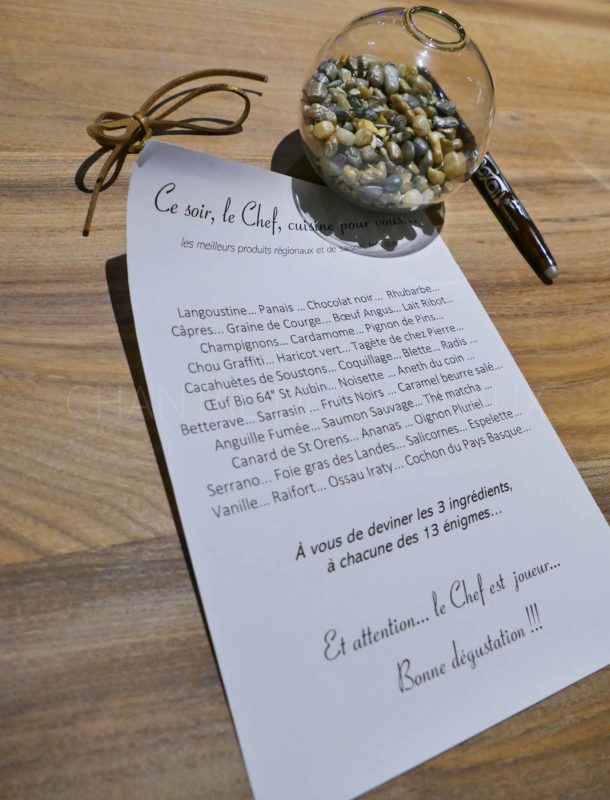 Ce soir, le Chef, cuisine pour vous...
les meilleurs produits régionaux et de saison
Langoustine... Panais ... Chocolat noir... Rhubarbe...
Câpres... Graine de Courge... Bœuf Angus... Lait Ribot...
Champignons... Cardamome... Pignon de Pins...
Chou Graffiti... Haricot vert... Tagète de chez Pierre...
Cacahuètes de Soustons... Coquillage... Blette... Radis ...
Œuf Bio 64° St Aubin... Noisette ... Aneth du coin ...
Betterave... Sarrasin ... Fruits Noirs ... Caramel beurre salé...
Anguille Fumée... Saumon Sauvage... Thé matcha ...
Canard de St Orens... Ananas ... Oignon Pluriel...
Serrano... Foie gras des Landes... Salicornes... Espelette...
Vanille... Raifort... Ossau Iraty... Cochon du Pays Basque...
À vous de deviner les 3 ingrédients,
à chacune des 13 énigmes...
Et attention... le Chef est joueur...
Bonne dégustation !!!